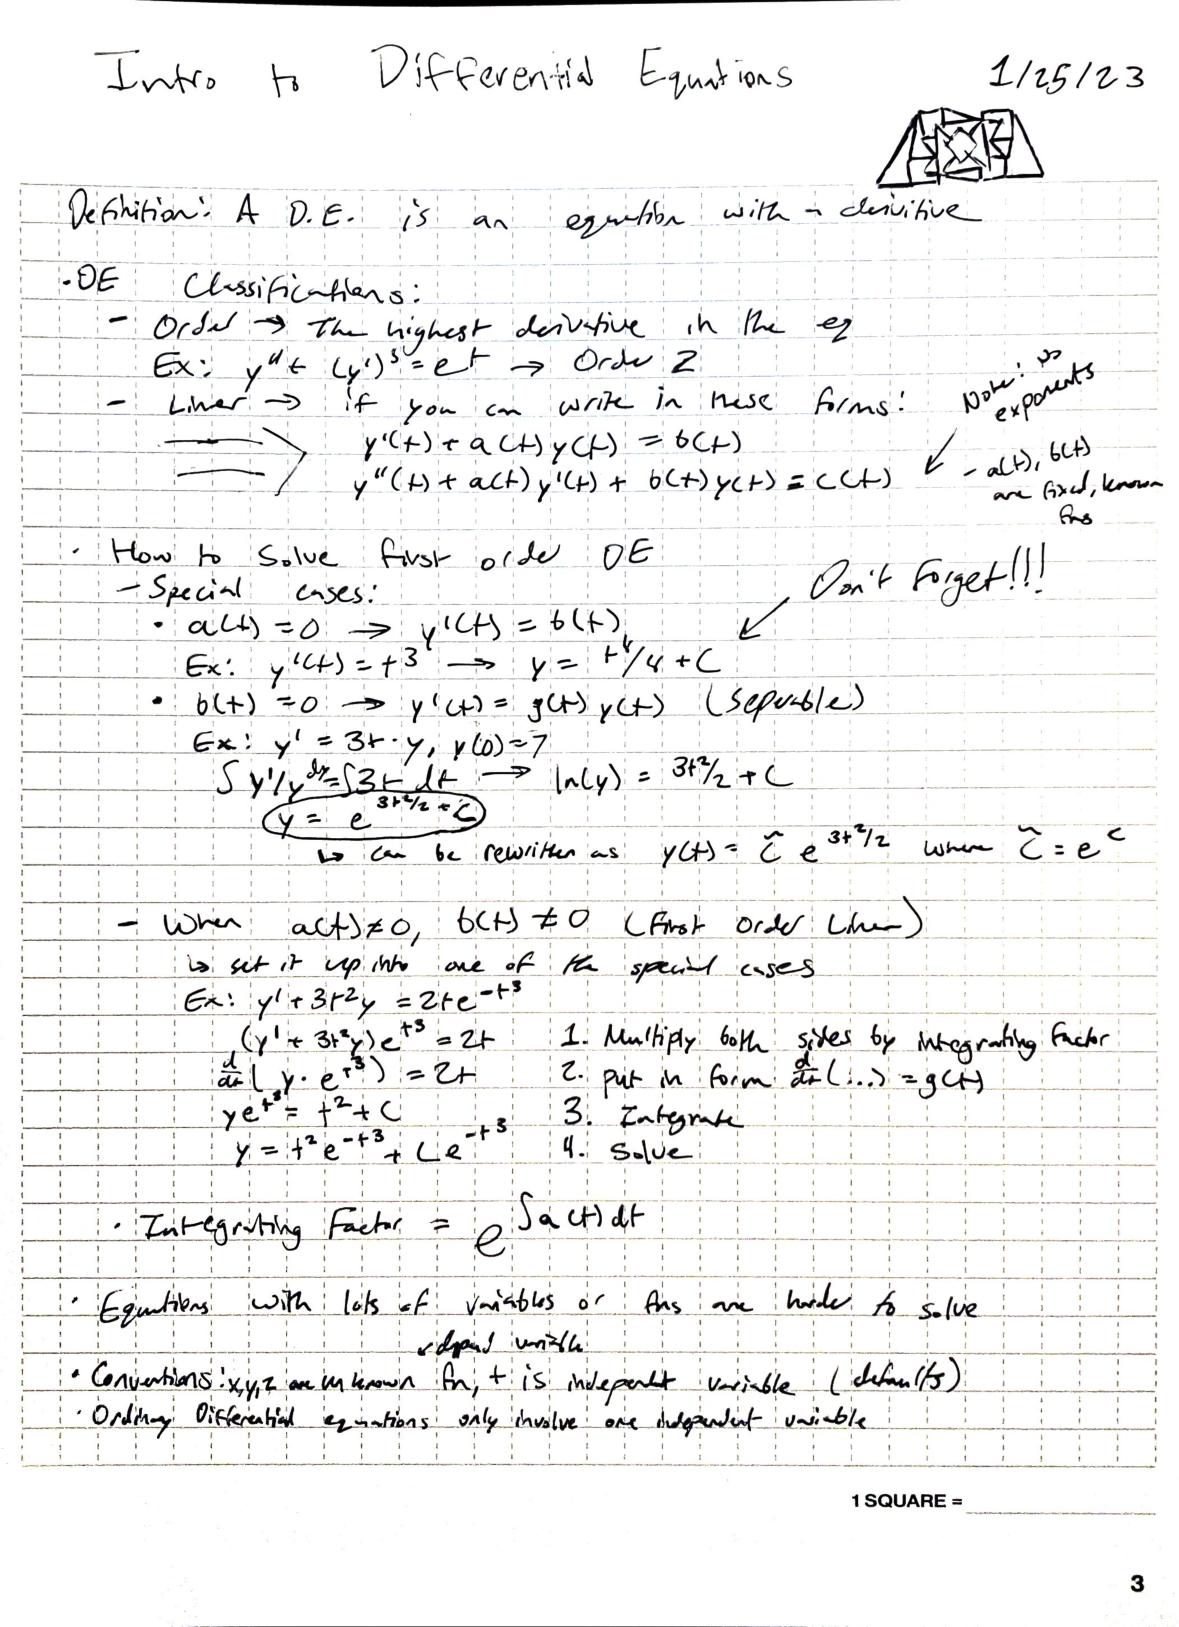 Intro to Differential Equations 1/25/23
Definition: A D.E. is an equation with a derivitive
· DE Classifications:
- Order → The highest derivative in the eq
Ex: y'' + (y')³ = eᵗ → Order 2
- Liner → if you can write in these forms:
Note: no exponents
y'(t) + a(t)y(t) = b(t)
y''(t) + a(t)y'(t) + b(t)y(t) = c(t)
- a(t), b(t)
are fixed, known
fns
· How to Solve first order DE
- Special cases:
Don't Forget!!!
· a(t) = 0 → y'(t) = b(t)
Ex: y'(t) = t³ → y = t⁴/4 + C
· b(t) = 0 → y'(t) = g(t) y(t) (separable)
Ex: y' = 3t · y, y(0) = 7
∫ y'/y dy = ∫ 3t dt → ln(y) = 3t²/2 + C
y = e^(3t²/2 + C)
↳ can be rewritten as y(t) = C̃ e^(3t²/2) where C̃ = e^c
- When a(t) ≠ 0, b(t) ≠ 0 (First Order Liner)
↳ set it up into one of the special cases
Ex: y' + 3t²y = 2te^(-t³)
(y' + 3t²y)e^(t³) = 2t 1. Multiply both sides by integrating factor
d/dt (y · e^(t³)) = 2t 2. put in form d/dt (...) = g(t)
ye^(t³) = t² + C 3. Integrate
y = t²e^(-t³) + Ce^(-t³) 4. Solve
· Integrating Factor = e^(∫a(t)dt)
· Equations with lots of variables or fns are harder to solve
depend variable
· Conventions: x,y,z are unknown fn, t is independent variable (defaults)
· Ordinary Differential equations only involve one independent variable
1 SQUARE =
3